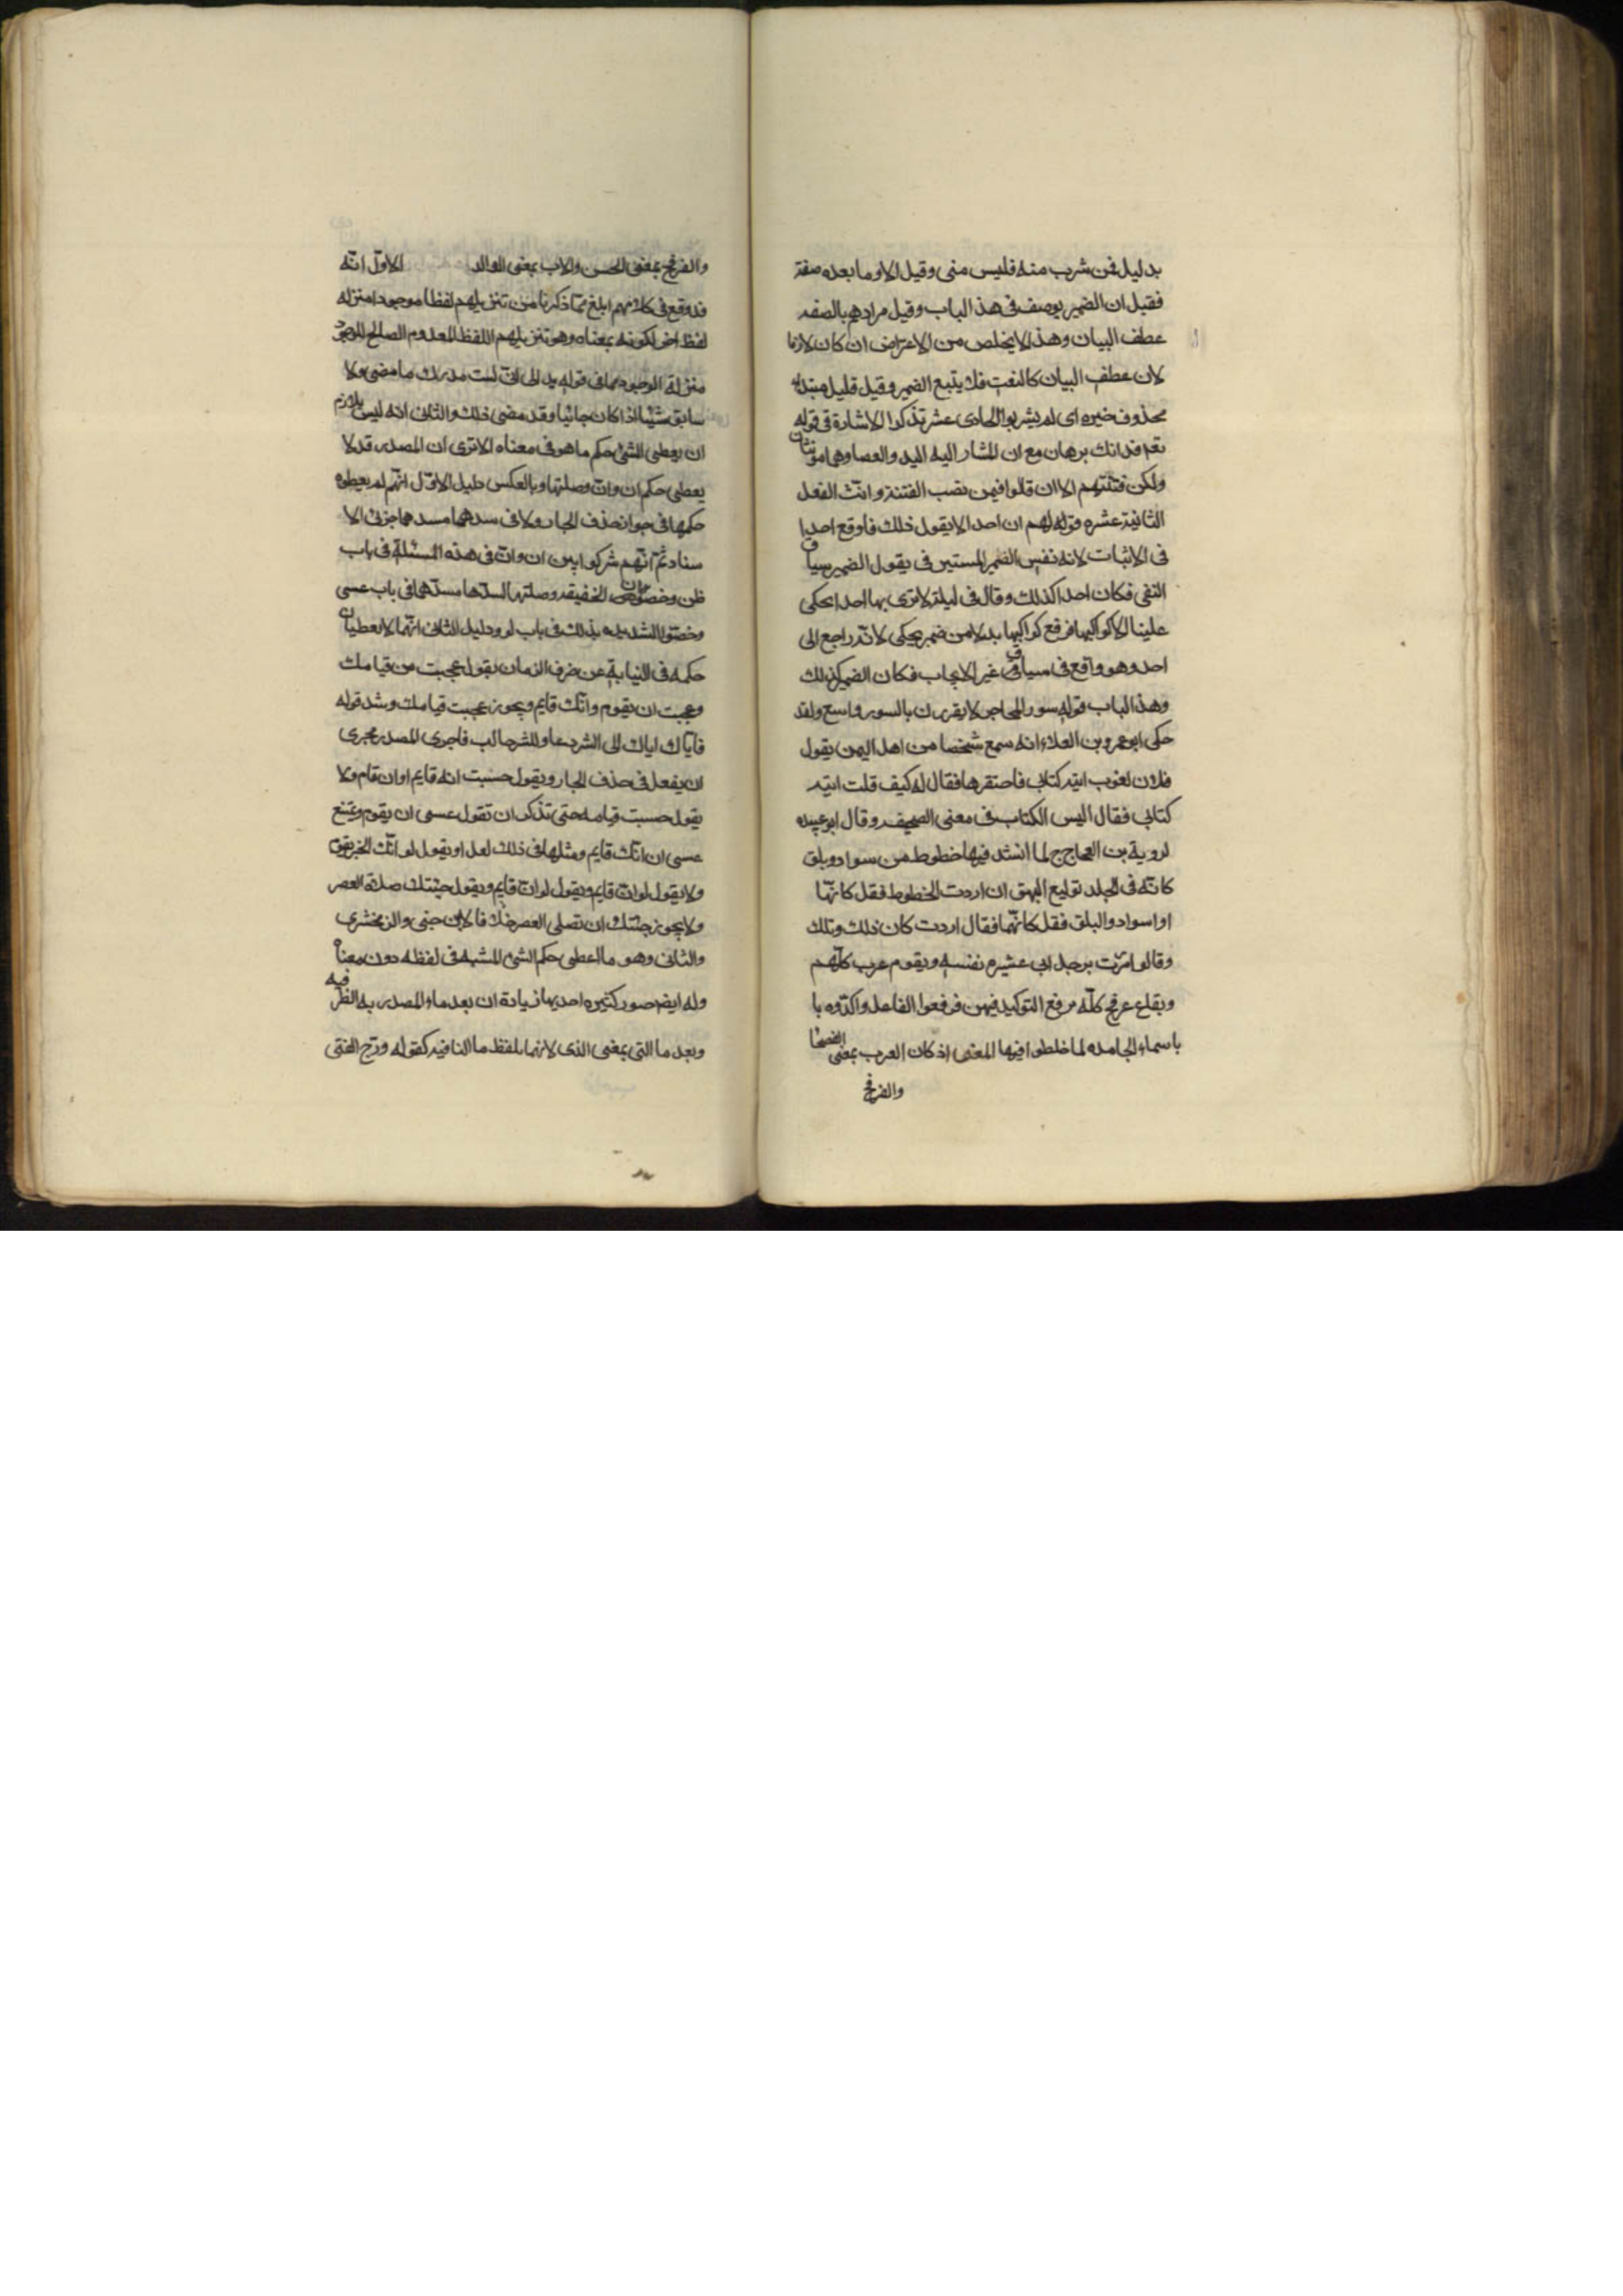 بدليل فمن شرب منه فليس منى وقيل الا وما بعده صفة
فقيل ان الضمير يوصف فى هذ الباب وقيل مرادهم بالصفه
عطف البيان وهذ الا يخلص من الاعتراض ان كان لازما
لان عطف البيان كالنعت فلا يتبع الضمير وقيل قليل مبتداء
محذوف خبره اى لم يشربوا الحادى عشر تذكر الاشارة فى قوله
تعم فذانك برهان مع ان المشار اليه اليد والعصا وهما مونثان
ولكن فتنتهم الا ان قالوا فيمن نصب الفتنة وانث الفعل
الثانية عشره قوله لهم ان احد الا يقول ذلك فاوقع احدا
فى الاثبات لانه نفس الضمير المستين فى يقول الضمير سياق
النفى فكان احد اكذلك وقال فى ليلة لا نرى بها احدا يحكى
علينا الا كواكبها فرفع كواكبها بدلا من ضمير يحكى لانه راجع الى
احد وهو واقع فى سياق غير الايجاب فكان الضمير كذلك
وهذ الباب قوله سور المحاجر لا يقرن بالسور واسع ولقد
حكى ابو عمرو بن العلاء انه سمع شخصا من اهل اليمن يقول
فلان لغوب اتته كتابى فاحتقرها فقال له كيف قلت اتته
كتابى فقال اليس الكتاب فى معنى الصحيفه وقال ابو عبيده
لروية بن العجاج لما انشد فيها خطوط من سواد وبلق
كانه فى الجلد توليع البهق ان اردت الخطوط فقل كانها
او اسواد والبلق فقل كانهما فقال اردت كان ذلك وتلك
وقالوا مررت برجل ابى عشره نفسه وبقوم عرب كلهم
وبقاع عرفج كله برفع التوكيد فيهن فرفعوا الفاعل واكدوه با
باسماء الجامده لما خلطوا فيها المعنى اذ كان العرب بمعنى الفصحا
والفرفج
والفرفج بمعنى الحسن والاب بمعنى الوالد الاول انه
قد وقع فى كلامهم ابلغ مما ذكرنا من تنزيلهم لفظا موجودا منزله
لفظ اخر لكونه بمعناه وهو تنزيلهم اللفظ المعدوم الصالح للوجود
منزلة الوجود كما فى قوله بد الى انى لست مدرك ما مضى ولا
سابق شيئا اذا كان جائيا وقد مضى ذلك والثانى انه ليس بلازم
ان يعطى الشئ حكم ما هو فى معناه الا ترى ان المصدر قد لا
يعطى حكم ان وان وصلتها وبالعكس دليل الاول انهم لم يعطوه
حكمها فى جواز حذف الجار ولا فى سدهما مسد هما جزئى الا
سناد ثم انهم شركوا بين ان وان فى هذه المسئلة فى باب
ظن وخصوا ان الخفيفه وصلتها السدها مسدهما فى باب عسى
وخصوا الشديده بذلك فى باب لو ودليل الثانى انهما لا يعطيان
حكمه فى النيابة عن ضرف الزمان يقول عجبت من قيامك
وعجبت ان يقوم وانك قايم ويجوز عجبت قيامك وشد قوله
فاياك اياك الى الشر دعا وللشر جالب فاجرى المصدر مجرى
ان يفعل فى حذف الجار ويقول حسبت انه قايم او ان قام ولا
يقول حسبت قيامه حتى تذكر ان تقول عسى ان يقوم ويمتنع
عسى ان انك قايم ومثلها فى ذلك لعل او يقول لو انك الخير
ولا يقول لو ان قايم ويقول لو ان قايم ويقول جئتك صلاة العصر
ولا يجوز جئتك ان تصلى العصر خلافا لابن جنى والزمخشرى
والثانى وهو ما اعطى حكم الشئ المشبه فى لفظه دون معناه
وله ايضا صور كثيره احديها زيادة ان بعد ماء المصدريه الظرفيه
وبعد ما التى بمعنى الذى لانهما بلفظ ما النافيه كقوله ورج الفتى